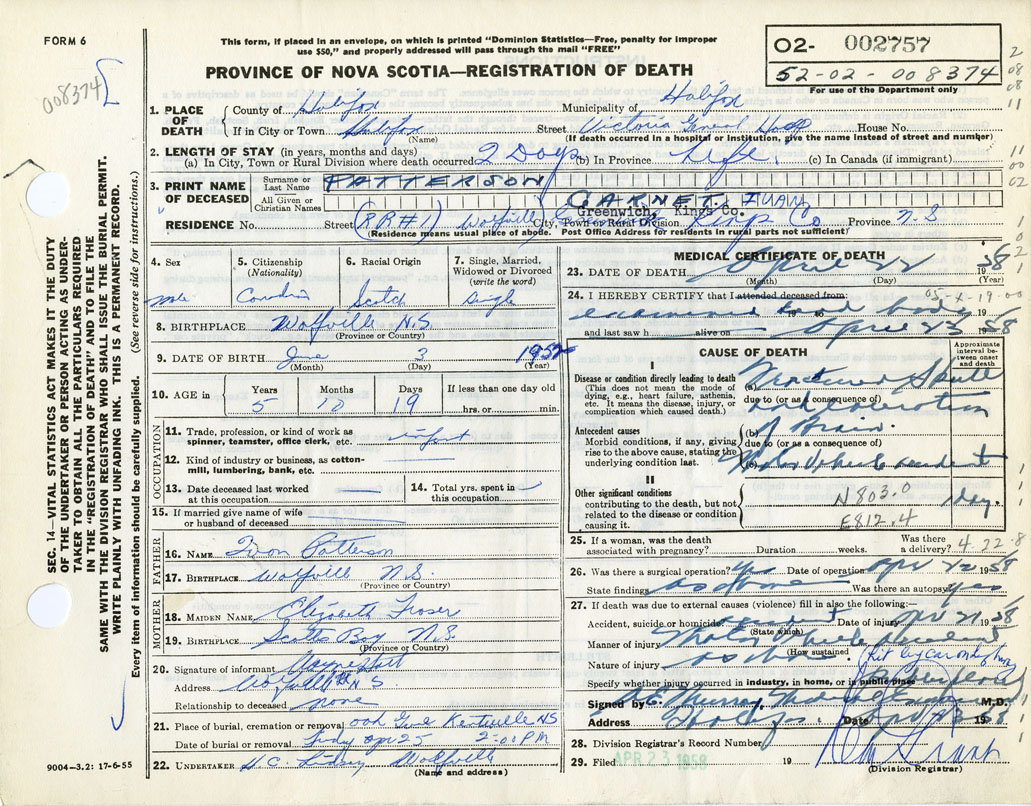 FORM 6
This form, if placed in an envelope, on which is printed "Dominion Statistics—Free, penalty for improper
use $50," and properly addressed will pass through the mail "FREE"
O2- 002757
52-02-008374
For use of the Department only
008374
PROVINCE OF NOVA SCOTIA—REGISTRATION OF DEATH
1. PLACE OF DEATH
County of Halifax Municipality of Halifax
If in City or Town Halifax Street Victoria General Hosp House No.
(Name) (If death occurred in a hospital or institution, give the name instead of street and number)
2. LENGTH OF STAY (in years, months and days)
(a) In City, Town or Rural Division where death occurred 2 Days (b) In Province Life. (c) In Canada (if immigrant)
3. PRINT NAME OF DECEASED
Surname or Last Name PATTERSON
All Given or Christian Names GARNET IVAN
Greenwich, Kings Co.
RESIDENCE No. Street (RR#1) Wolfville City, Town or Rural Division Kings Co Province N.S
(Residence means usual place of abode. Post Office Address for residents in rural parts not sufficient)
4. Sex
male
5. Citizenship
(Nationality)
Canadian
6. Racial Origin
Scotch
7. Single, Married,
Widowed or Divorced
(write the word)
Single
8. BIRTHPLACE Wolfville N.S.
(Province or Country)
9. DATE OF BIRTH June 3 1952
(Month) (Day) (Year)
10. AGE in
Years Months Days If less than one day old
5 10 19 hrs. or min.
OCCUPATION
11. Trade, profession, or kind of work as
spinner, teamster, office clerk, etc. infant
12. Kind of industry or business, as cotton-
mill, lumbering, bank, etc.
13. Date deceased last worked
at this occupation
14. Total yrs. spent in
this occupation
15. If married give name of wife
or husband of deceased
FATHER
16. NAME Patterson
17. BIRTHPLACE Wolfville N.S.
(Province or Country)
MOTHER
18. MAIDEN NAME Elizabeth Fraser
19. BIRTHPLACE Scotts Bay N.S.
(Province or Country)
20. Signature of informant
Address Wolfville N.S.
Relationship to deceased none
21. Place of burial, cremation or removal Kentville NS
Date of burial or removal Friday Apr 25 2:00 PM
22. UNDERTAKER H.C. Lindsay Wolfville
(Name and address)
MEDICAL CERTIFICATE OF DEATH
23. DATE OF DEATH April 22 1958
(Month) (Day) (Year)
24. I HEREBY CERTIFY that I attended deceased from:
05-X-19-00
examined body
and last saw h alive on April 23 1958
CAUSE OF DEATH
Approximate
interval be-
tween onset
and death
I
Disease or condition directly leading to death
(This does not mean the mode of
dying, e.g., heart failure, asthenia,
etc. It means the disease, injury, or
complication which caused death.)
(a) Fractured Skull
due to (or as a consequence of)
and laceration
Antecedent causes
Morbid conditions, if any, giving
rise to the above cause, stating the
underlying condition last.
(b) of Brain.
due to (or as a consequence of)
(c) Motor Vehicle accident
II
Other significant conditions
contributing to the death, but not
related to the disease or condition
causing it.
N803.0
E812.4
1 day.
25. If a woman, was the death
associated with pregnancy? Duration weeks. Was there
a delivery? 4-22-8
26. Was there a surgical operation? Yes Date of operation Apr 22 1958
State findings as above Was there an autopsy? Yes
27. If death was due to external causes (violence) fill in also the following:—
Accident, suicide or homicide accident Date of injury Apr 21 1958
(State which)
Manner of injury Motor Vehicle Accident
(How sustained
Nature of injury as above Hit by car on highway
Specify whether injury occurred in industry, in home, or in public place
Signed by M.D.
Address Date Apr 23 1958
28. Division Registrar's Record Number
29. Filed APR 23 1958 19
(Division Registrar)
9004-3.2: 17-6-55
SEC. 14—VITAL STATISTICS ACT MAKES IT THE DUTY
OF THE UNDERTAKER OR PERSON ACTING AS UNDER-
TAKER TO OBTAIN ALL THE PARTICULARS REQUIRED
IN THE "REGISTRATION OF DEATH" AND TO FILE THE
SAME WITH THE DIVISION REGISTRAR WHO SHALL ISSUE THE BURIAL PERMIT.
WRITE PLAINLY WITH UNFADING INK. THIS IS A PERMANENT RECORD.
Every item of information should be carefully supplied. (See reverse side for instructions.)